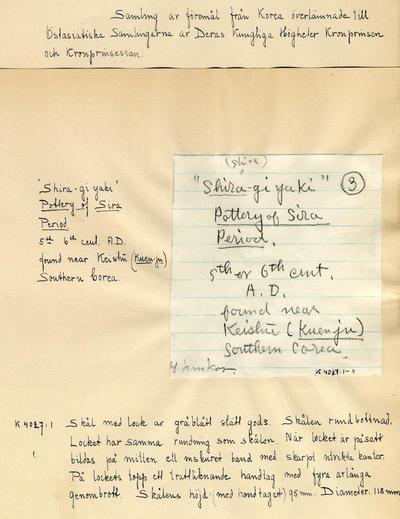 Samling av föremål från Korea överlämnade till
Östasiatiska Samlingarna av Deras Kungliga Högheter Kronprinsen
och Kronprinsessan.
"Shira-gi yaki"
Pottery of Sira
Period.
5th 6th cent. A.D.
found near Keishū (Kuenju)
Southern Corea.
(Shira)
"Shira-gi yaki" 3
Pottery of Sira
Period.
5th or 6th cent.
A.D.
found near
Keishū (Kuenju)
Southern Corea
4 krukor.
K 4087:1-4
K 4087:1 Skål med lock av gråblått slätt gods. Skålen rundbottnad.
Locket har samma rundning som skålen. När locket är påsatt
bildas på mitten ett inskuret band med skarpt utvikta kanter.
På lockets topp ett trattliknande handtag med fyra avlånga
genombrott. Skålens höjd (med handtaget) 95 mm. Diameter. 118 mm